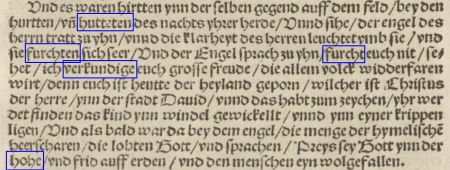 Und es waren hirtten ynn der selben gegend auff dem feld/bey den
hurtten/vñ hutteten des nachts yhrer herde/Vnnd sihe/der engel des
herrn tratt zu yhn/vnnd die klarheyt des herren leuchtet vmb sie/vnd
sie furchten sich seer/Vnd der Engel sprach zu yhn/furcht euch nit/se-
het/ich verkundige euch grosse freude/die allem volck widderfaren
wirt/denn euch ist heutte der heyland geporn/wilcher ist Christus
der herre/ynn der stadt Dauid/vnnd das habt zum zeychen/yhr wer
det finden das kind ynn windel gewickellt/vnnd ynn eyner krippen
ligen/Vnd als bald war da bey dem engel/die menge der hymelischē
heerscharen/die lobten Gott/vnd sprachen/Preys sey Gott ynn der
hohe/vnd frid auff erden/vnd den menschen eyn wolgefallen.